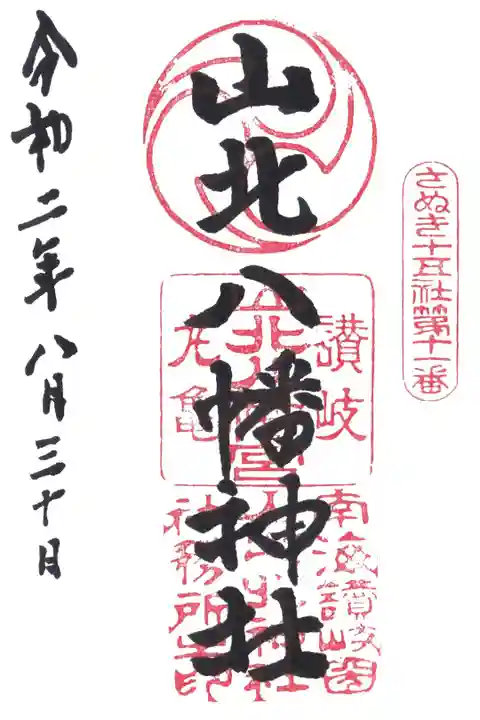 さぬき十五社第十一番
山北八幡神社
讃岐
丸亀
令和二年八月三十日